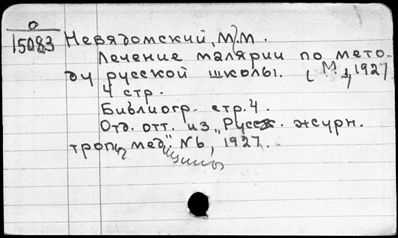 0
15083 Невядомский, М.М.
Лечение малярии по мето-
ду русской школы. [М.], 1927
4 стр.
Библиогр. стр. 4.
Отд. отт. из "Русск. журн.
троп. медицины" №6, 1927.